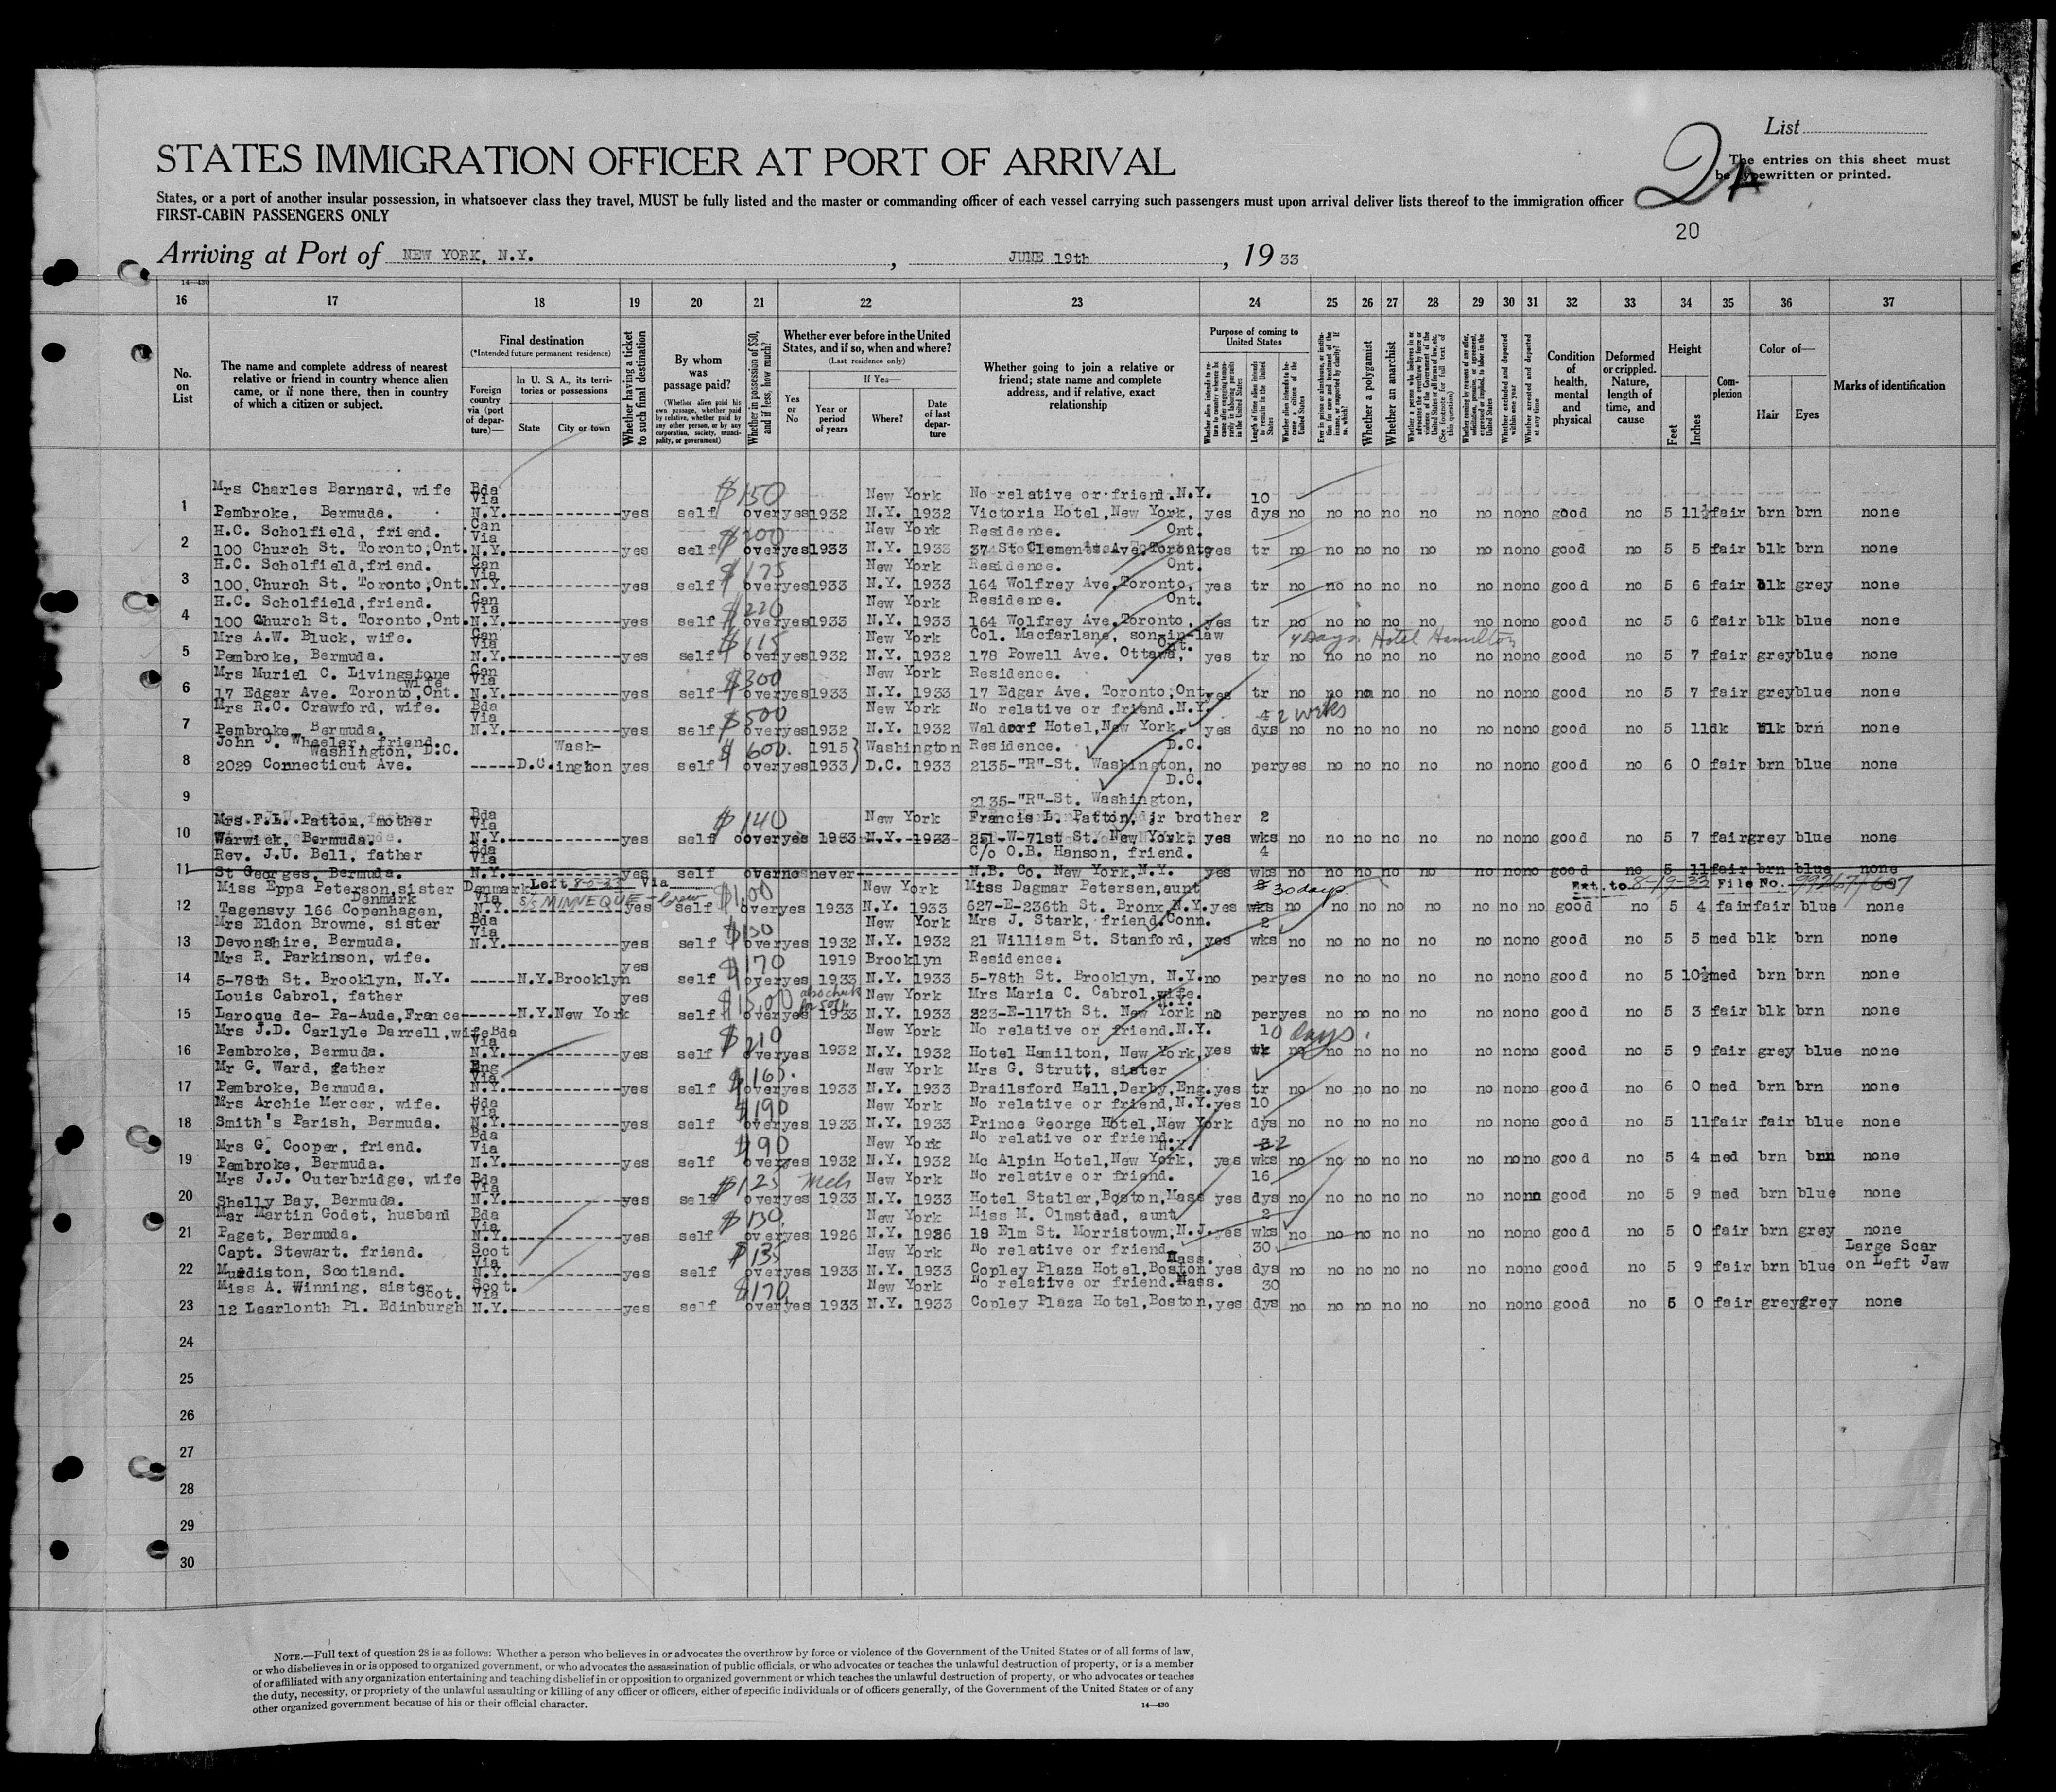 List
The entries on this sheet must
be typewritten or printed.
2A
STATES IMMIGRATION OFFICER AT PORT OF ARRIVAL
States, or a port of another insular possession, in whatsoever class they travel, MUST be fully listed and the master or commanding officer of each vessel carrying such passengers must upon arrival deliver lists thereof to the immigration officer
FIRST-CABIN PASSENGERS ONLY
20
Arriving at Port of NEW YORK, N.Y. , JUNE 19th , 19 33
14—430
16 17 18 19 20 21 22 23 24 25 26 27 28 29 30 31 32 33 34 35 36 37
No. on List
The name and complete address of nearest relative or friend in country whence alien came, or if none there, then in country of which a citizen or subject.
Final destination
(*Intended future permanent residence)
Foreign country via (port of departure)—
In U. S. A., its territories or possessions
State
City or town
Whether having a ticket to such final destination
By whom was passage paid?
(Whether alien paid his own passage, whether paid by relative, whether paid by any other person, or by any corporation, society, municipality, or government)
Whether in possession of $50, and if less, how much?
Whether ever before in the United States, and if so, when and where?
(Last residence only)
Yes or No
If Yes—
Year or period of years
Where?
Date of last departure
Whether going to join a relative or friend; state name and complete address, and if relative, exact relationship
Purpose of coming to United States
Length of time alien intends to remain in the United States
Whether alien intends to become a citizen of the United States
Whether a polygamist
Whether an anarchist
(See footnote for full text of this question)
Whether excluded and deported within one year
Whether arrested and deported at any time
Condition of health, mental and physical
Deformed or crippled. Nature, length of time, and cause
Height
Feet
Inches
Complexion
Color of—
Hair
Eyes
Marks of identification
Mrs Charles Barnard, wife Bda Via $150 New York No relative or friend.N.Y. 10
1 Pembroke, Bermuda. N.Y.------------yes self over yes 1932 N.Y. 1932 Victoria Hotel,New York, yes dys no no no no no no no no good no 5 11½ fair brn brn none
H.C. Scholfield, friend. Can Via $200 New York Residence. Ont.
2 100 Church St. Toronto,Ont. N.Y.------------yes self over yes 1933 N.Y. 1933 37 St Clements Ave.Toronto yes tr no no no no no no no no good no 5 5 fair blk brn none
H.C. Scholfield,friend. Can Via $175 New York Residence. Ont.
3 100 Church St. Toronto,Ont. N.Y.------------yes self over yes 1933 N.Y. 1933 164 Wolfrey Ave.Toronto, yes tr no no no no no no no no good no 5 6 fair blk grey none
H.C. Scholfield,friend. Can Via $220 New York Residence. Ont.
4 100 Church St. Toronto,Ont. N.Y.------------yes self over yes 1933 N.Y. 1933 164 Wolfrey Ave.Toronto, yes tr no no no no no no no no good no 5 6 fair blk blue none
Mrs A.W. Bluck, wife. Can Via $115 New York Col. Macfarlane, son-in-law Ont. 4 Days Hotel Hamilton
5 Pembroke, Bermuda. N.Y.------------yes self over yes 1932 N.Y. 1932 178 Powell Ave. Ottawa, yes tr no no no no no no no no good no 5 7 fair grey blue none
Mrs Muriel C. Livingstone wife Can Via $300 New York Residence.
6 17 Edgar Ave. Toronto,Ont. N.Y.------------yes self over yes 1933 N.Y. 1933 17 Edgar Ave. Toronto,Ont. yes tr no no no no no no no no good no 5 7 fair grey blue none
Mrs R.C. Crawford, wife. Bda Via $500 New York No relative or friend.N.Y. 2 wks
7 Pembroke, Bermuda. N.Y.------------yes self over yes 1932 N.Y. 1932 Waldorf Hotel,New York, yes dys no no no no no no no no good no 5 11 dk blk brn none
John J. Wheeler, friend. Washington, D.C. Wash- $600. 1915 Washington Residence. D.C.
8 2029 Connecticut Ave. -----D.C. ington yes self over yes 1933 D.C. 1933 2135-"R"-St. Washington, no per yes no no no no no no no good no 6 0 fair brn blue none
D.C.
9 2135-"R"-St. Washington,
Mrs F.L. Patton, mother Bda Via $140 New York Francis L. Patton, jr brother 2
10 Warwick, Bermuda. N.Y.------------yes self over yes 1933 N.Y. 1933 251-W-71st St. New York, yes wks no no no no no no no no good no 5 7 fair grey blue none
Rev. J.U. Bell, father Bda Via C/o O.B. Hanson, friend. 4
11 St Georges, Bermuda. N.Y.------------yes self over no never N.B. Co. New York,N.Y. yes wks no no no no no no no no good no 5 11 fair brn blue none
Miss Eppa Peterson,sister Denmark Denmark Via Left Via $100 New York Miss Dagmar Petersen,aunt 30 days Ext. to 8-19-33 File No.
S/S MINNEQUE
12 Tagensvy 166 Copenhagen, N.Y. yes self over yes 1933 N.Y. 1933 627-E-236th St. Bronx,N.Y. yes wks no no no no no no no no good no 5 4 fair fair blue none
Mrs Eldon Browne, sister Bda Via $130 New York Mrs J. Stark, friend.Conn. 2
13 Devonshire, Bermuda. N.Y.------------yes self over yes 1932 N.Y. 1932 21 William St. Stanford, yes wks no no no no no no no no good no 5 5 med blk brn none
Mrs R. Parkinson, wife. yes $170 1919 Brooklyn Residence.
14 5-78th St. Brooklyn, N.Y. -----N.Y.Brooklyn self over yes 1933 N.Y. 1933 5-78th St. Brooklyn, N.Y. no per yes no no no no no no no good no 5 10½ med brn brn none
Louis Cabrol, father yes New York Mrs Maria C. Cabrol,wife. N.Y.
15 Laroque de- Pa-Aude,France------N.Y.New York self over yes 1933 N.Y. 1933 323-E-117th St. New York no per yes no no no no no no no good no 5 3 fair blk brn none
Mrs J.D. Carlyle Darrell,wife Bda Via $210 New York No relative or friend.N.Y. 10 days.
16 Pembroke, Bermuda. N.Y.------------yes self over yes 1932 N.Y. 1932 Hotel Hamilton, New York, yes wk no no no no no no no no good no 5 9 fair grey blue none
Mr G. Ward, father Eng Via $165. New York Mrs G. Strutt, sister
17 Pembroke, Bermuda. N.Y.------------yes self over yes 1933 N.Y. 1933 Brailsford Hall,Derby,Eng. yes tr no no no no no no no no good no 6 0 med brn brn none
Mrs Archie Mercer, wife. Bda Via $190 New York No relative or friend,N.Y. yes 10
18 Smith's Parish, Bermuda. N.Y.------------yes self over yes 1933 N.Y. 1933 Prince George Hotel,New York dys no no no no no no no no good no 5 11 fair fair blue none
Mrs G. Cooper, friend. Bda Via $90 New York No relative or friend. N.Y. 2
19 Pembroke, Bermuda. N.Y.------------yes self over yes 1932 N.Y. 1932 Mc Alpin Hotel,New York, yes wks no no no no no no no no good no 5 4 med brn brn none
Mrs J.J. Outerbridge, wife Bda Via $125 New York No relative or friend. 16
20 Shelly Bay, Bermuda. N.Y.------------yes self over yes 1933 N.Y. 1933 Hotel Statler,Boston,Mass yes dys no no no no no no no no good no 5 9 med brn blue none
Mar Martin Godet, husband Bda Via $130. New York Miss M. Olmstead, aunt 2
21 Paget, Bermuda. N.Y.------------yes self over yes 1926 N.Y. 1926 18 Elm St. Morristown,N.J. yes wks no no no no no no no no good no 5 0 fair brn grey none
Capt. Stewart. friend. Scot Via $135 New York No relative or friend. Mass. 30 Large Scar
22 Murdiston, Scotland. N.Y.------------yes self over yes 1933 N.Y. 1933 Copley Plaza Hotel,Boston yes dys no no no no no no no no good no 5 9 fair brn blue on Left Jaw
Miss A. Winning, sister Scot. Scot. Via $170 New York No relative or friend.Mass. 30
23 12 Learlonth Pl. Edinburgh N.Y.------------yes self over yes 1933 N.Y. 1933 Copley Plaza Hotel,Boston, yes dys no no no no no no no no good no 5 0 fair grey grey none
24
25
26
27
28
29
30
NOTE.—Full text of question 28 is as follows: Whether a person who believes in or advocates the overthrow by force or violence of the Government of the United States or of all forms of law,
or who disbelieves in or is opposed to organized government, or who advocates the assassination of public officials, or who advocates or teaches the unlawful destruction of property, or is a member
of or affiliated with any organization entertaining and teaching disbelief in or opposition to organized government or which teaches the unlawful destruction of property, or who advocates or teaches
the duty, necessity, or propriety of the unlawful assaulting or killing of any officer or officers, either of specific individuals or of officers generally, of the Government of the United States or of any
other organized government because of his or their official character.
14—430